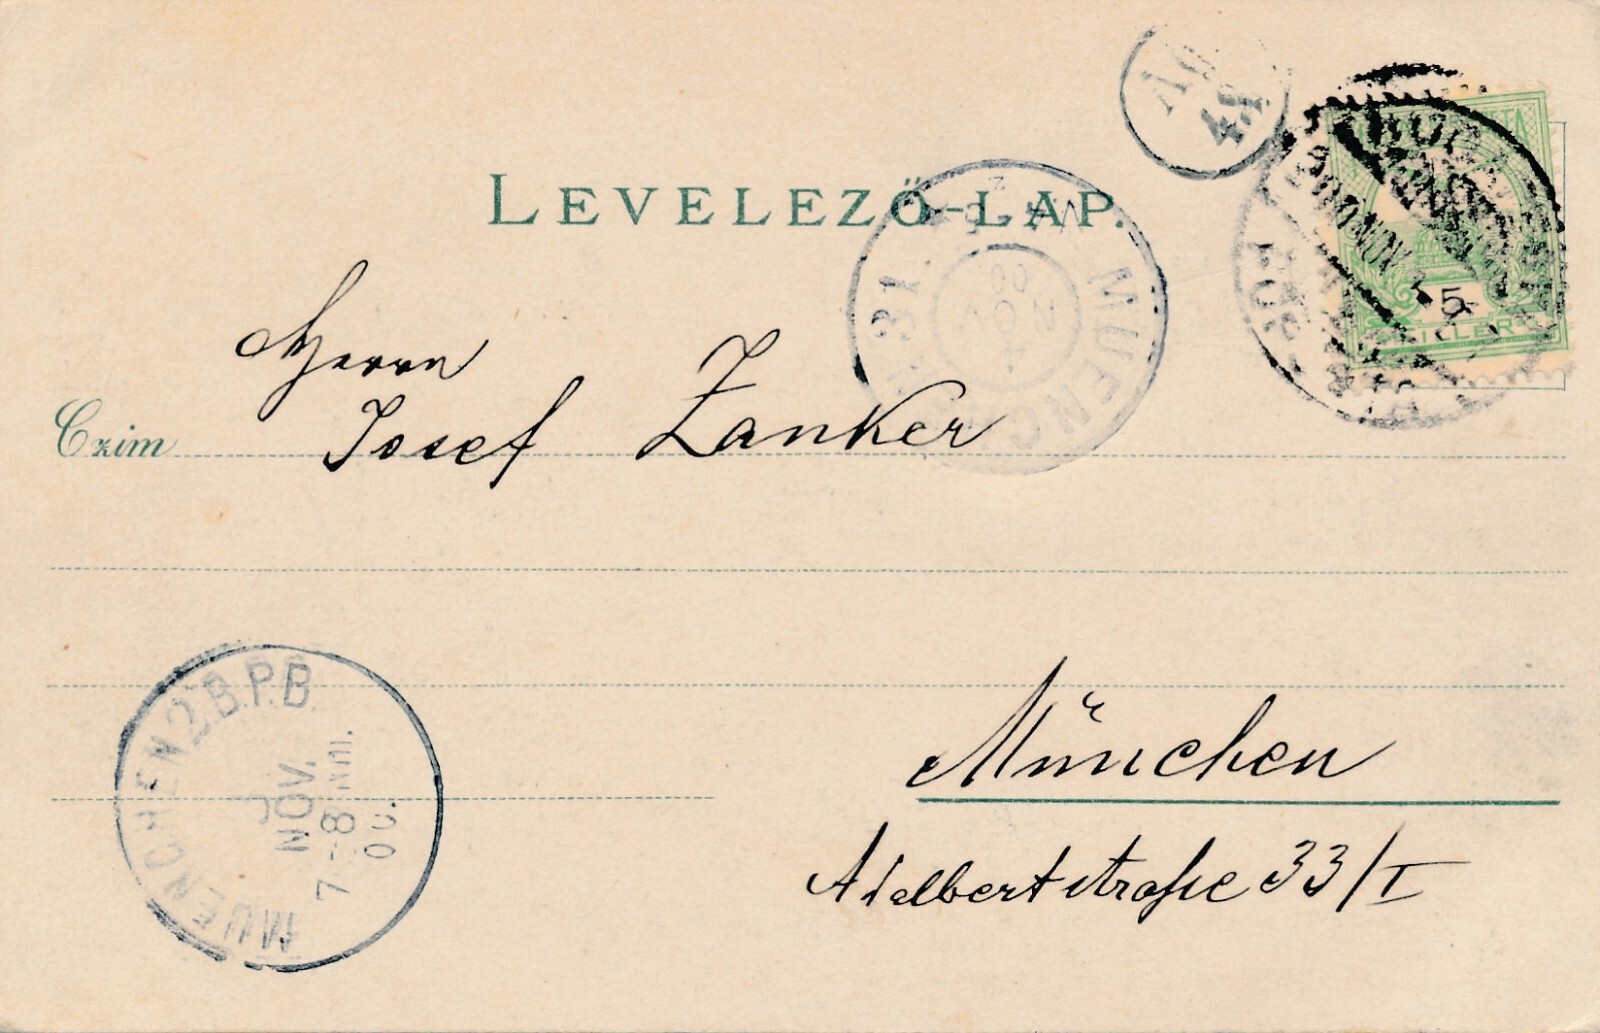 LEVELEZŐ-LAP.
Ag
44
5
FILLÉR
MUENCHEN 31
4
NOV
00
Herrn
Czim Josef Zanker
München
Adalbertstraße 33/I
MUENCHEN 2 B.P.B.
NOV.
7-8 NM.
00.